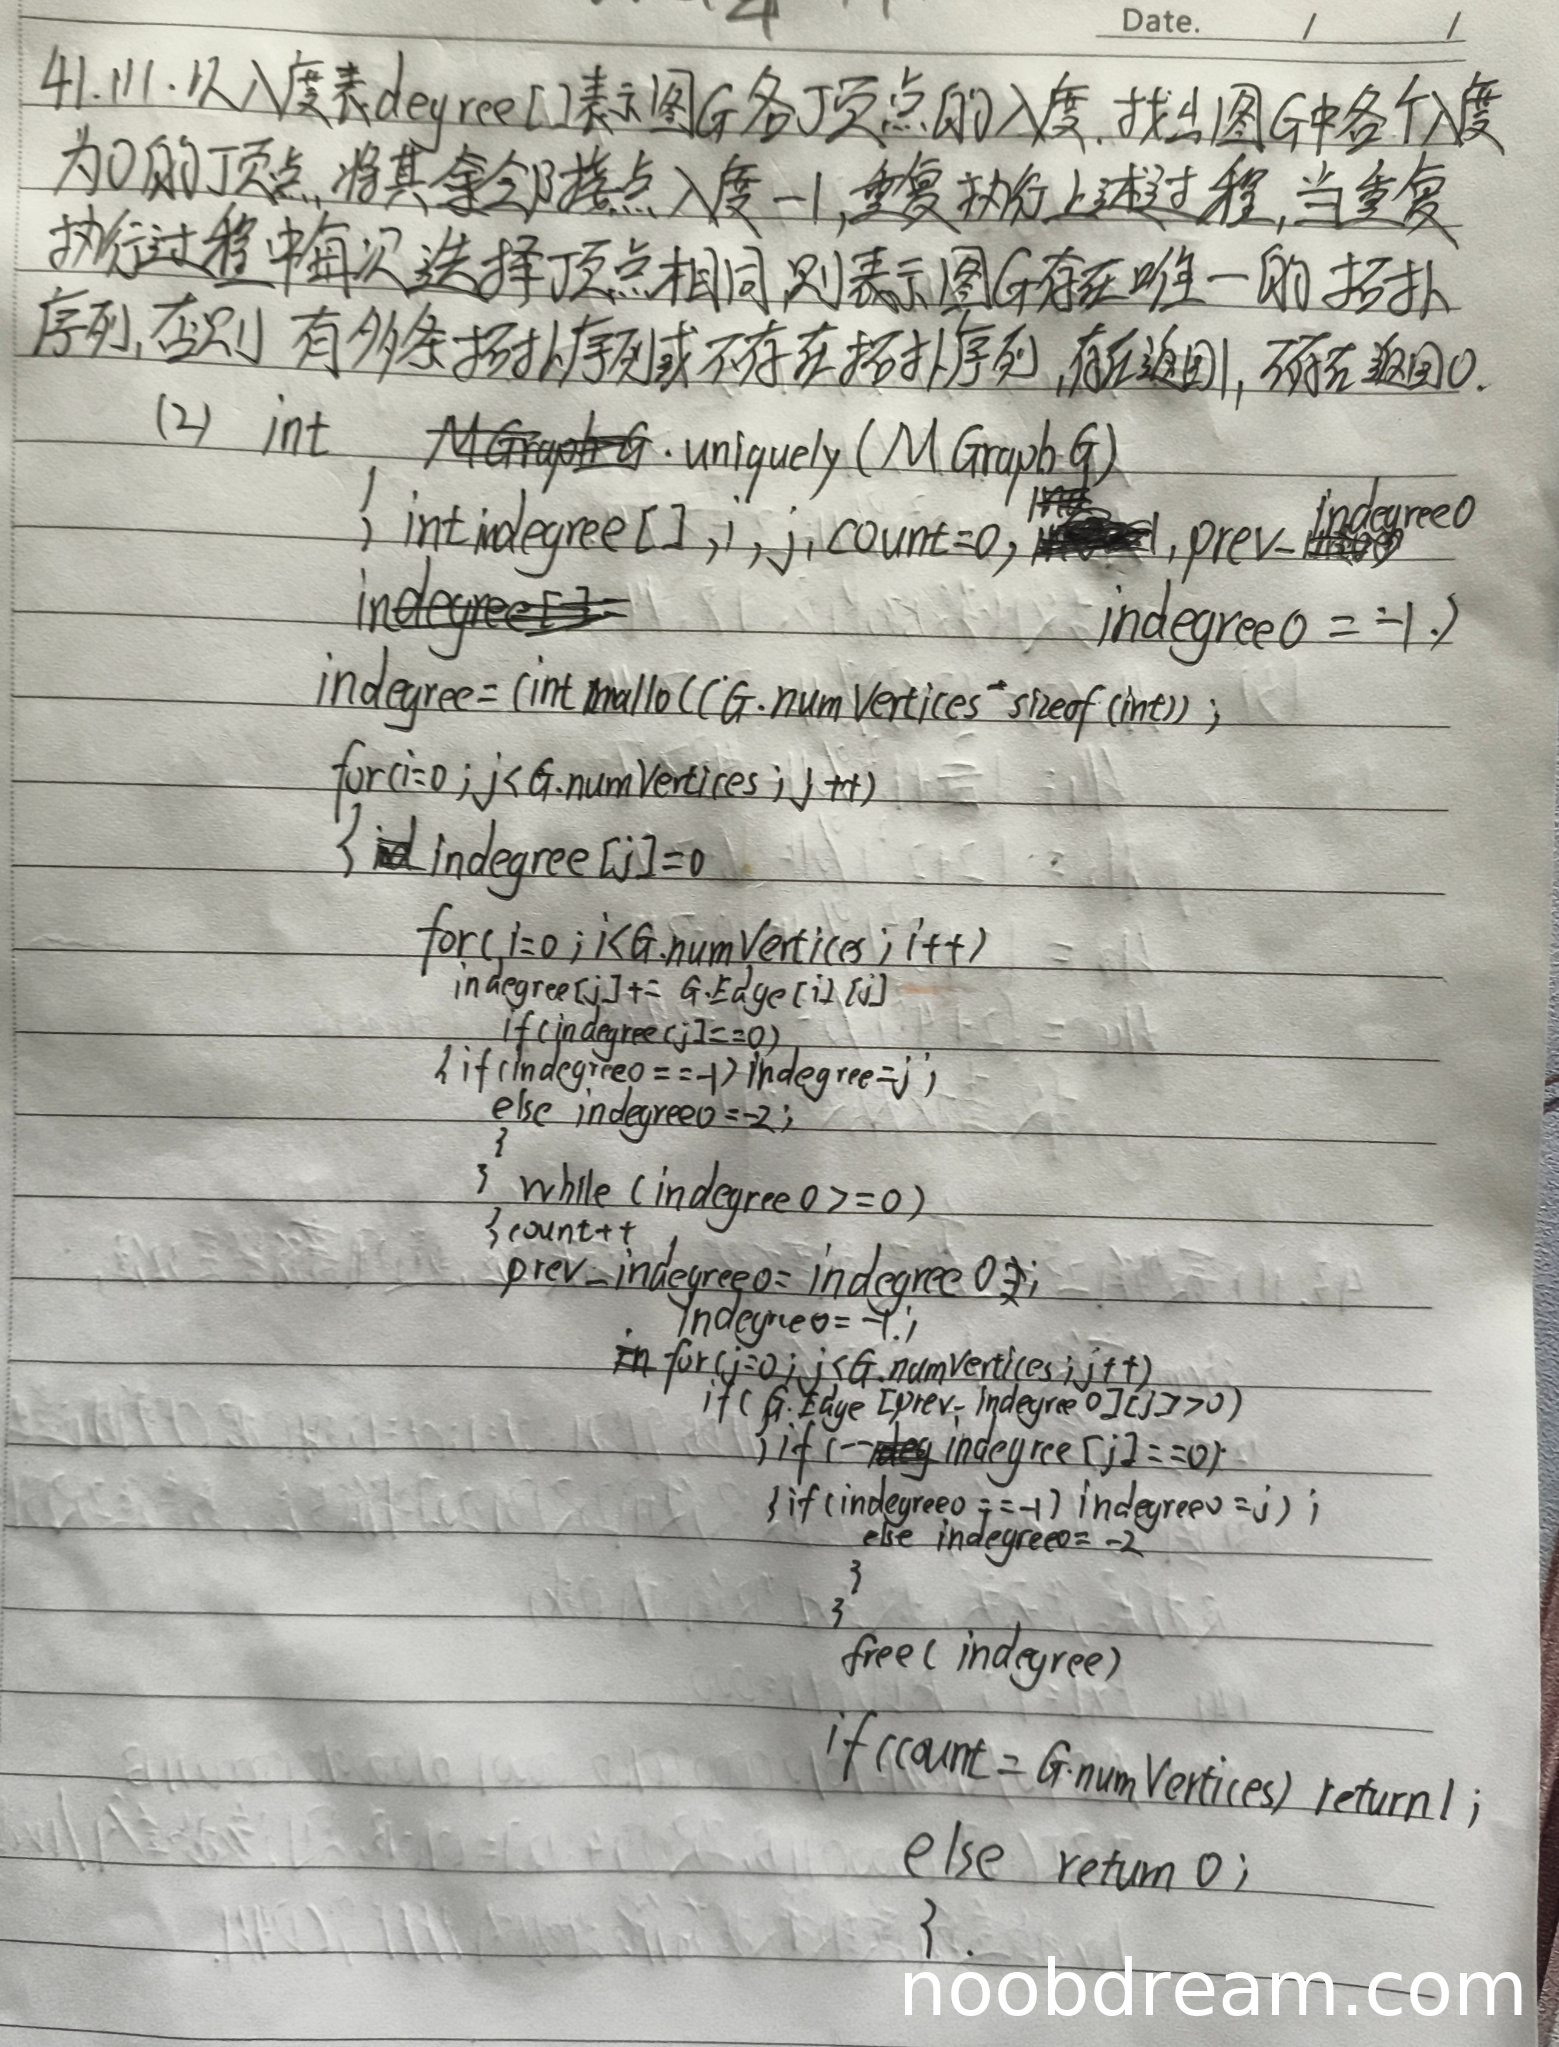 Date. / /
41.(1).以入度表degree[]表示图G各顶点的入度.找出图G中各个入度
为0的顶点,将其余全邻接点入度-1,重复执行上述过程,当重复
执行过程中每次选择顶点相同,则表示图G存在唯一的拓扑
序列,否则有多条拓扑序列或不存在拓扑序列,存在返回1,不存在返回0.
(2) int uniquely(MGraph G)
{ int indegree[],i,j,count=0, prev_indegree0
indegree0=-1.)
indegree=(int mallo((G.numVertices*sizeof(int));
for(i=0;j<G.numVertices;j++)
{ indegree[j]=0
for(i=0;i<G.numVertices;i++)
indegree[j]+= G.Edge[i][j]
if(indegree[j]==0)
{if(indegree0==-1)indegree=j;
else indegree0=-2;
}
} while(indegree0>=0)
{count++
prev_indegree0=indegree0;
indegree0=-1.;
for(j=0;j<G.numVertices;j++)
if(G.Edge[prev_indegree0][j]>0)
{if(--indegree[j]==0)
{if(indegree0==-1) indegree0=j);
else indegree0=-2
}
}
free(indegree)
if(count=G.numVertices) return 1;
else return 0;
}.
noobdream.com